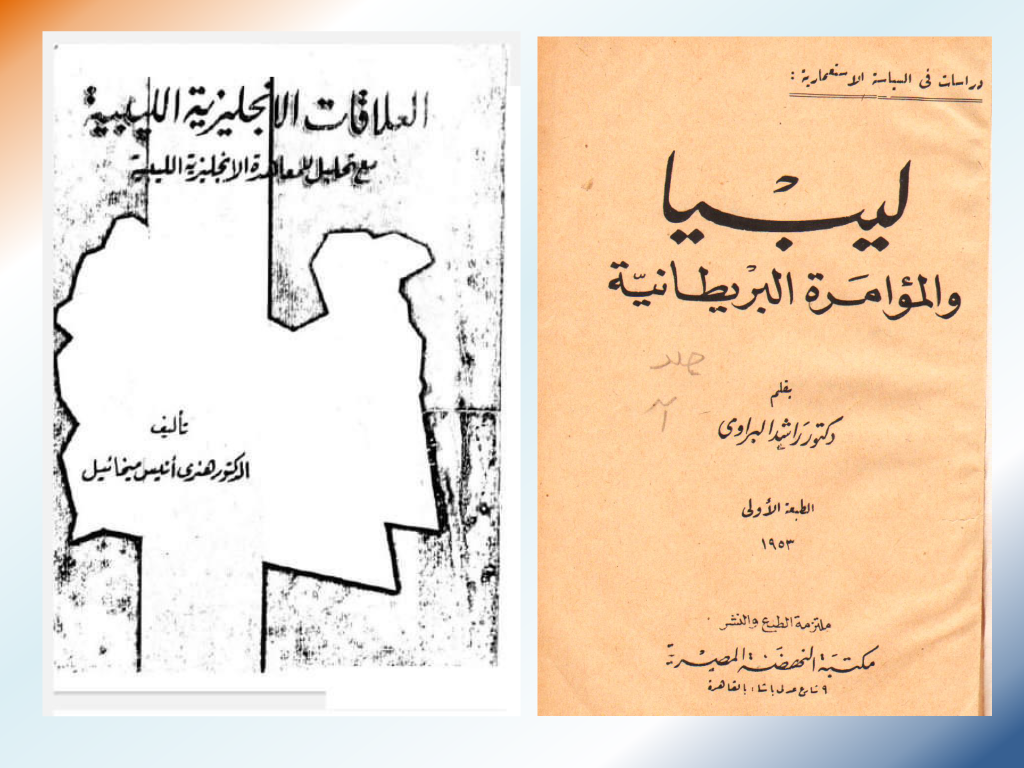 العلاقات الانجليزية الليبية
مع تحليل للمعاهدة الانجليزية الليبية
تأليف
الدكتور هنرى أنيس ميخائيل
دراسات فى السياسة الاستعمارية :
ليبيا
والمؤامرة البريطانية
بقلم
دكتور راشد البراوى
الطبعة الأولى
١٩٥٣
ملتزمة الطبع والنشر
مكتبة النهضة المصرية
٩ شارع عدلى باشا بالقاهرة